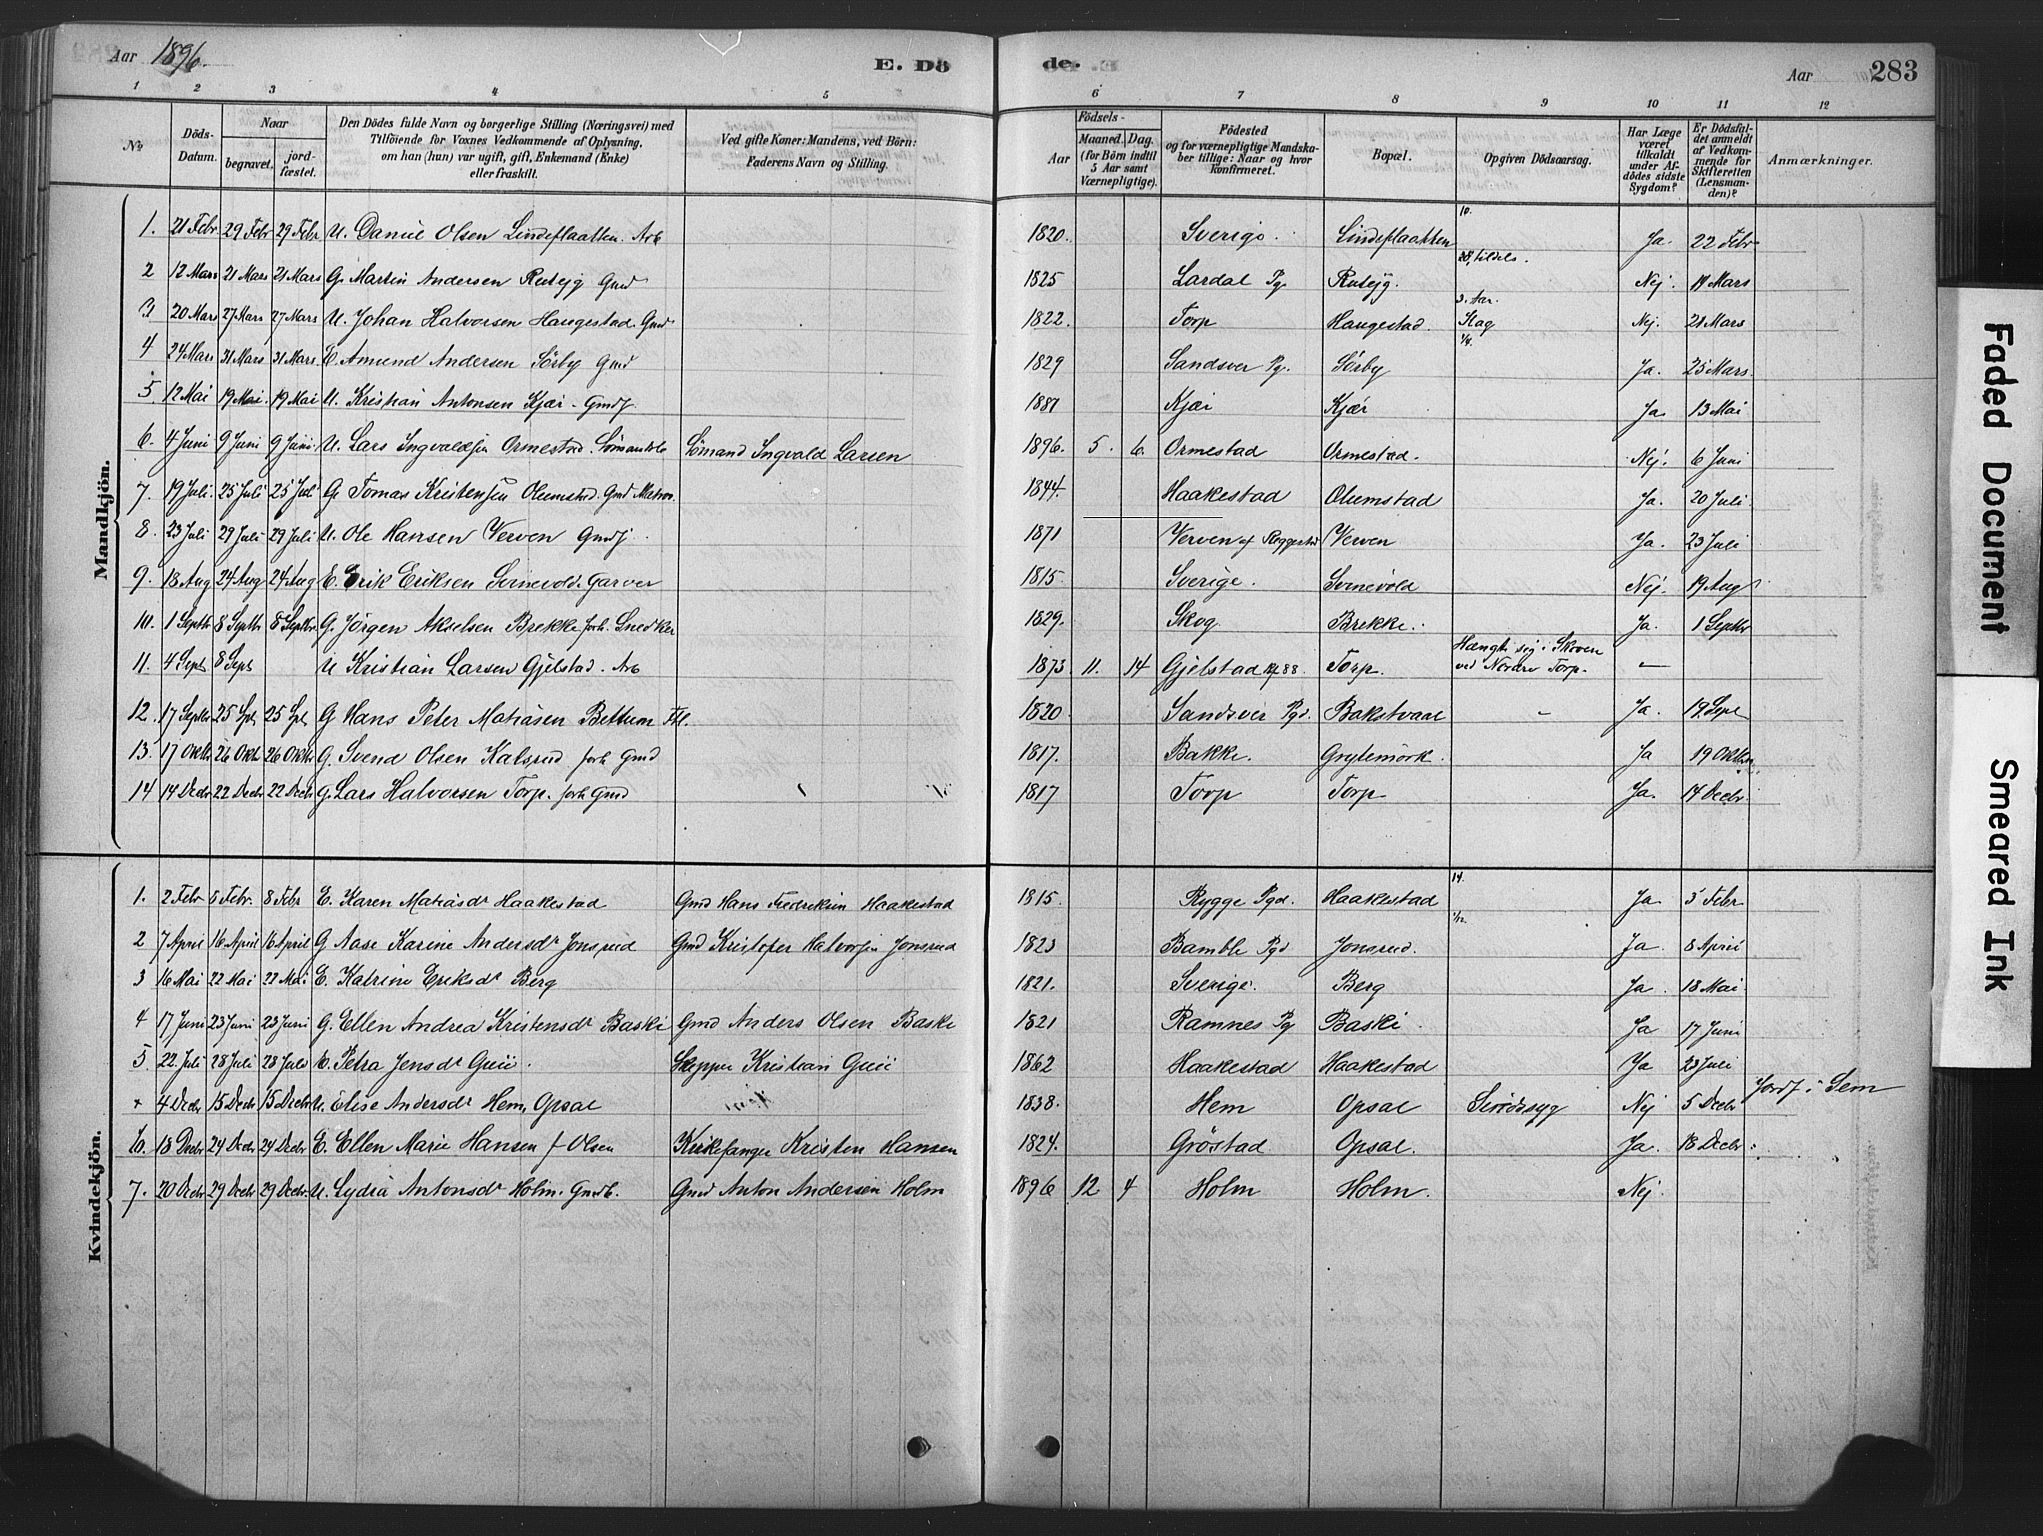 Aar 1896. E. Dö de. Aar 283
1 2 3 4 5 6 7 8 9 10 11 12
№ Döds-Datum. Naar begravet. jordfæstet. Den Dödes fulde Navn og borgerlige Stilling (Næringsvei) med Tilföiende for Voxnes Vedkommende af Oplysning, om han (hun) var ugift, gift, Enkemand (Enke) eller fraskilt. Ved gifte Koner: Mandens, ved Börn: Faderens Navn og Stilling. Födsels- Aar Maaned. Dag. (for Börn indtil 5 Aar samt Værnepligtige). Födested og for værnepligtige Mandskaber tillige: Naar og hvor konfirmeret. Bopæl. Opgiven Dödsaarsag. Har Læge været tilkaldt under Afdödes sidste Sygdom? Er Dödsfaldet anmeldt af Vedkommende for Skifteretten (Lensmanden)? Anmærkninger.
Mandkjön.
1. 21 Febr 29 Febr 29 Febr U. Daniel Olsen Lindeflaatten. Arb 1820. Sverige. Lindeflaatten 10. Ja. 22 Febr
2 12 Mars 21 Mars 21 Mars G. Martin Andersen Gmd 1825 Lardal Pg. 28, tildels. Nej. 19 Mars
3 20 Mars 27 Mars 27 Mars U. Johan Halvorsen Haugestad. Gmd 1822. Torp Haugestad. 3. Aar. Slag Nej. 21 Mars
4 24 Mars 31 Mars 31 Mars E Amund Andersen Sörby Gmd 1829 Sandsver Pg. Sörby Ja. 25 Mars.
5. 12 Mai 19 Mai. 19 Mai U. Kristian Antonsen Kjær - Gmdf. 1887 Kjær Kjær Ja. 13 Mai
6. 4 Juni 9 Juni 9 Juni U. Lars Ingvaldsen Ormestad. Sömand Ingvald Larsen 1896. 5. 6. Ormestad Ormestad. Nej. 6 Juni
7. 19 Juli. 25 Juli 25 Juli G. Tomas Kristensen Olumstad. Gmd Matros. 1844. Haakestad Olumstad Ja. 20 Juli.
8. 23 Juli 29 Juli 29 Juli U. Ole Hansen Verven Gmdf. 1871 Verven Verven Ja. 23 Juli
9. 18 Aug 24 Aug 24 Aug E. Erik Eriksen Svinevold. Garver 1815. Sverige. Svinevold Nej. 19 Aug
10. 1 Septbr 8 Septbr 8 Septbr. G. Jörgen Akselsen Brekke forh. Snedker 1829. Skog Brekke. Ja. 1 Septbr
11. 4 Sept 8 Sept U Kristian Larsen Gjelstad. Arb 1873. 11. 14 Gjelstad kf 88. Torp. Hængte sig i Skoven ved Nordre Torp. —
12. 17 Septbr 25 Spt 25 Spt G Hans Peter Matiasen Bettum Fl. 1820 Sandsver Pgd. Bakstvaal - Ja. 19. Sept
13. 17 Oktbr 26 Oktbr 26 Oktbr G. Svend Olsen Kalsrud forh Gmd 1817. Bakke. Grytemörk. Ja 19 Oktbr.
14 14 Decbr 22 Decbr 22 Decbr G. Lars Halvorsen Torp. forh Gmd 1817 Torp Torp Ja. 14 Decbr.
Kvindekjön.
1. 2 Febr 8 Febr. 8 Febr E. Karen Matiasdr Haakestad Gmd Hans Fredriksen Haakestad 1815. Rygge Pgd. Haakestad 14. Ja 3 Febr
2 7 April 16 April 16 April G Aase Karine Andersdr Jonsrud Gmd Kristofer Halvorsen Jonsrud 1823 Bamble Pgd Jonsrud. Ja. 8 April
3 16 Mai 22 Mai 22 Mai E. Katrine Eriksdr Berg 1821. Sverige. Berg Ja. 18 Mai
4 17 Juni 23 Juni 23 Juni G. Ellen Andrea Kristensdr Baski Gmd Anders Olsen Baski 1821 Ramnes Pg Baski. Ja 17 Juni
5. 22. Juli 28 Juli 28 Juli Petra Jensdr Skipper Kristian 1862 Haakestad Haakestad Ja 23 Juli
+ 4 Decbr 15 Decbr 15 Decbr U. Elise Andersdr Hem, Opsal 1838. Hem Opsal Nej 5 Decbr Jordf. i Sem
6. 18 Decbr 24 Decbr 24 Decbr E. Ellen Marie Hansen f Olsen Kirkesanger Kristen Hansen 1824. Gröstad Opsal. Ja. 18 Decbr.
7. 20 Decbr 29 Decbr 29 Decbr. U. Lydia Antonsdr Holm. Gmdb. Gmd Anton Andersen Holm 1896 12 4 Holm Holm. Nej.
Faded Document
Smeared Ink